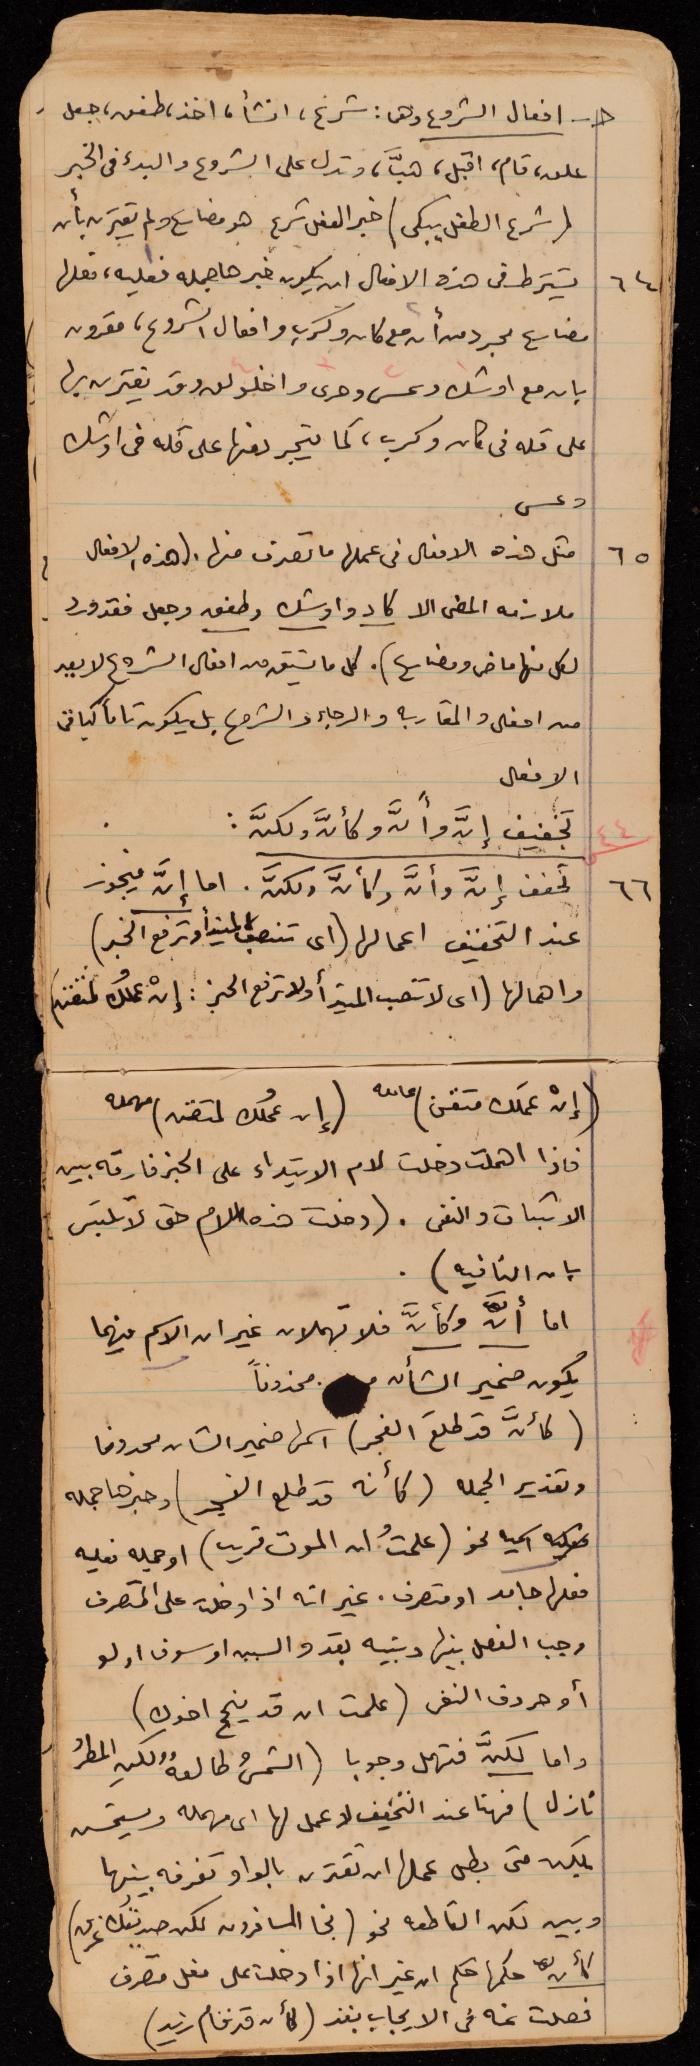 حـ - افعال الشروع وهى: شرع، انشأ، اخذ، طفق، جعل
علق، قام، اقبل، هبَّ، وتدل على الشروع والبدء فى الخبر
(شرع الطفل يبكى) خبر الفعل شرع هو مضارع ولم يقترن بأن
٦٤ يشترط فى هذه الافعال ان يكون خبرها جمله فعليه، فعلها
مضارع مجرد من أن مع كاد وكرب وافعال الشروع، مقرون
بان مع اوشك وعسى وحرى واخلولق وقد يقترن بها
على قله فى كاد وكرب، كما يتجرد منها على قله فى اوشك
وعسى
٦٥ مثل هذه الافعال فى عملها ما تصرف منها. (هذه الافعال
ملازمه المضى الا كاد واوشك وطفق وجعل فقد ورد
لكل منها ماض ومضارع). كل ما يشتق من افعال الشروع لا يعد
من افعال والمقاربه والرجاء والشروع بل يكون تاماً كباقى
الافعال
٤٤ تخفيف إنَّ وأنَّ وكأنَّ ولكنَّ:
٦٦ تخفف إنَّ وأنَّ وكأنَّ ولكنَّ. اما إنَّ فيجوز
عند التخفيف اعمالها (اى تنصب المبتدأ وترفع الخبر)
واهمالها (اى لا تنصب المبتدأ ولا ترفع الخبر: إنْ عملُك لمتقن)
(إنْ عملَك متقن) عامله (إن عملُك لمتقن) مهمله
فاذا اهملت دخلت لام الابتداء على الخبر فارقه بين
الاثبات والنفى. (دخلت هذه اللام حتى لا تلتبس
بان النافيه).
اما أنَّ وكأنَّ فلا تهملان غير ان الاسم فيهما
يكون ضمير الشأن محذوفاً
(كأنَّ قد طلعَ الفجر) اسمها ضمير الشان محذوفا
وتقدير الجمله (كأنه قد طلع الفجر) وخبرها جمله
اسميه نحو (علمتُ ان الموت قريب) او جمله فعليه
فعلها جامد او متصرف. غير انه اذا دخلت على المتصرف
وجب الفصل بينها وبينه بقد والسين او سوف او لو
أو حروف النفى (علمت ان قد ينجح اخوك)
واما لكنَّ فتهمل وجوبا (الشمسُ طالعةٌ ولكنِ المطرُ
نازل) فهنا عند التخفيف لا عمل لها اى مهمله ويستحسن
بلكن متى بطل عملها ان تقترن بالواو تفرقه بينها
وبين لكن العاطفه نحو (نجا المسافرون لكن صديقُك غرق)
كأن حكمها حكم ان غير انها اذا دخلت على فعل متصرف
فصلت عنه فى الايجاب بقد (كأن قد قام زيد)